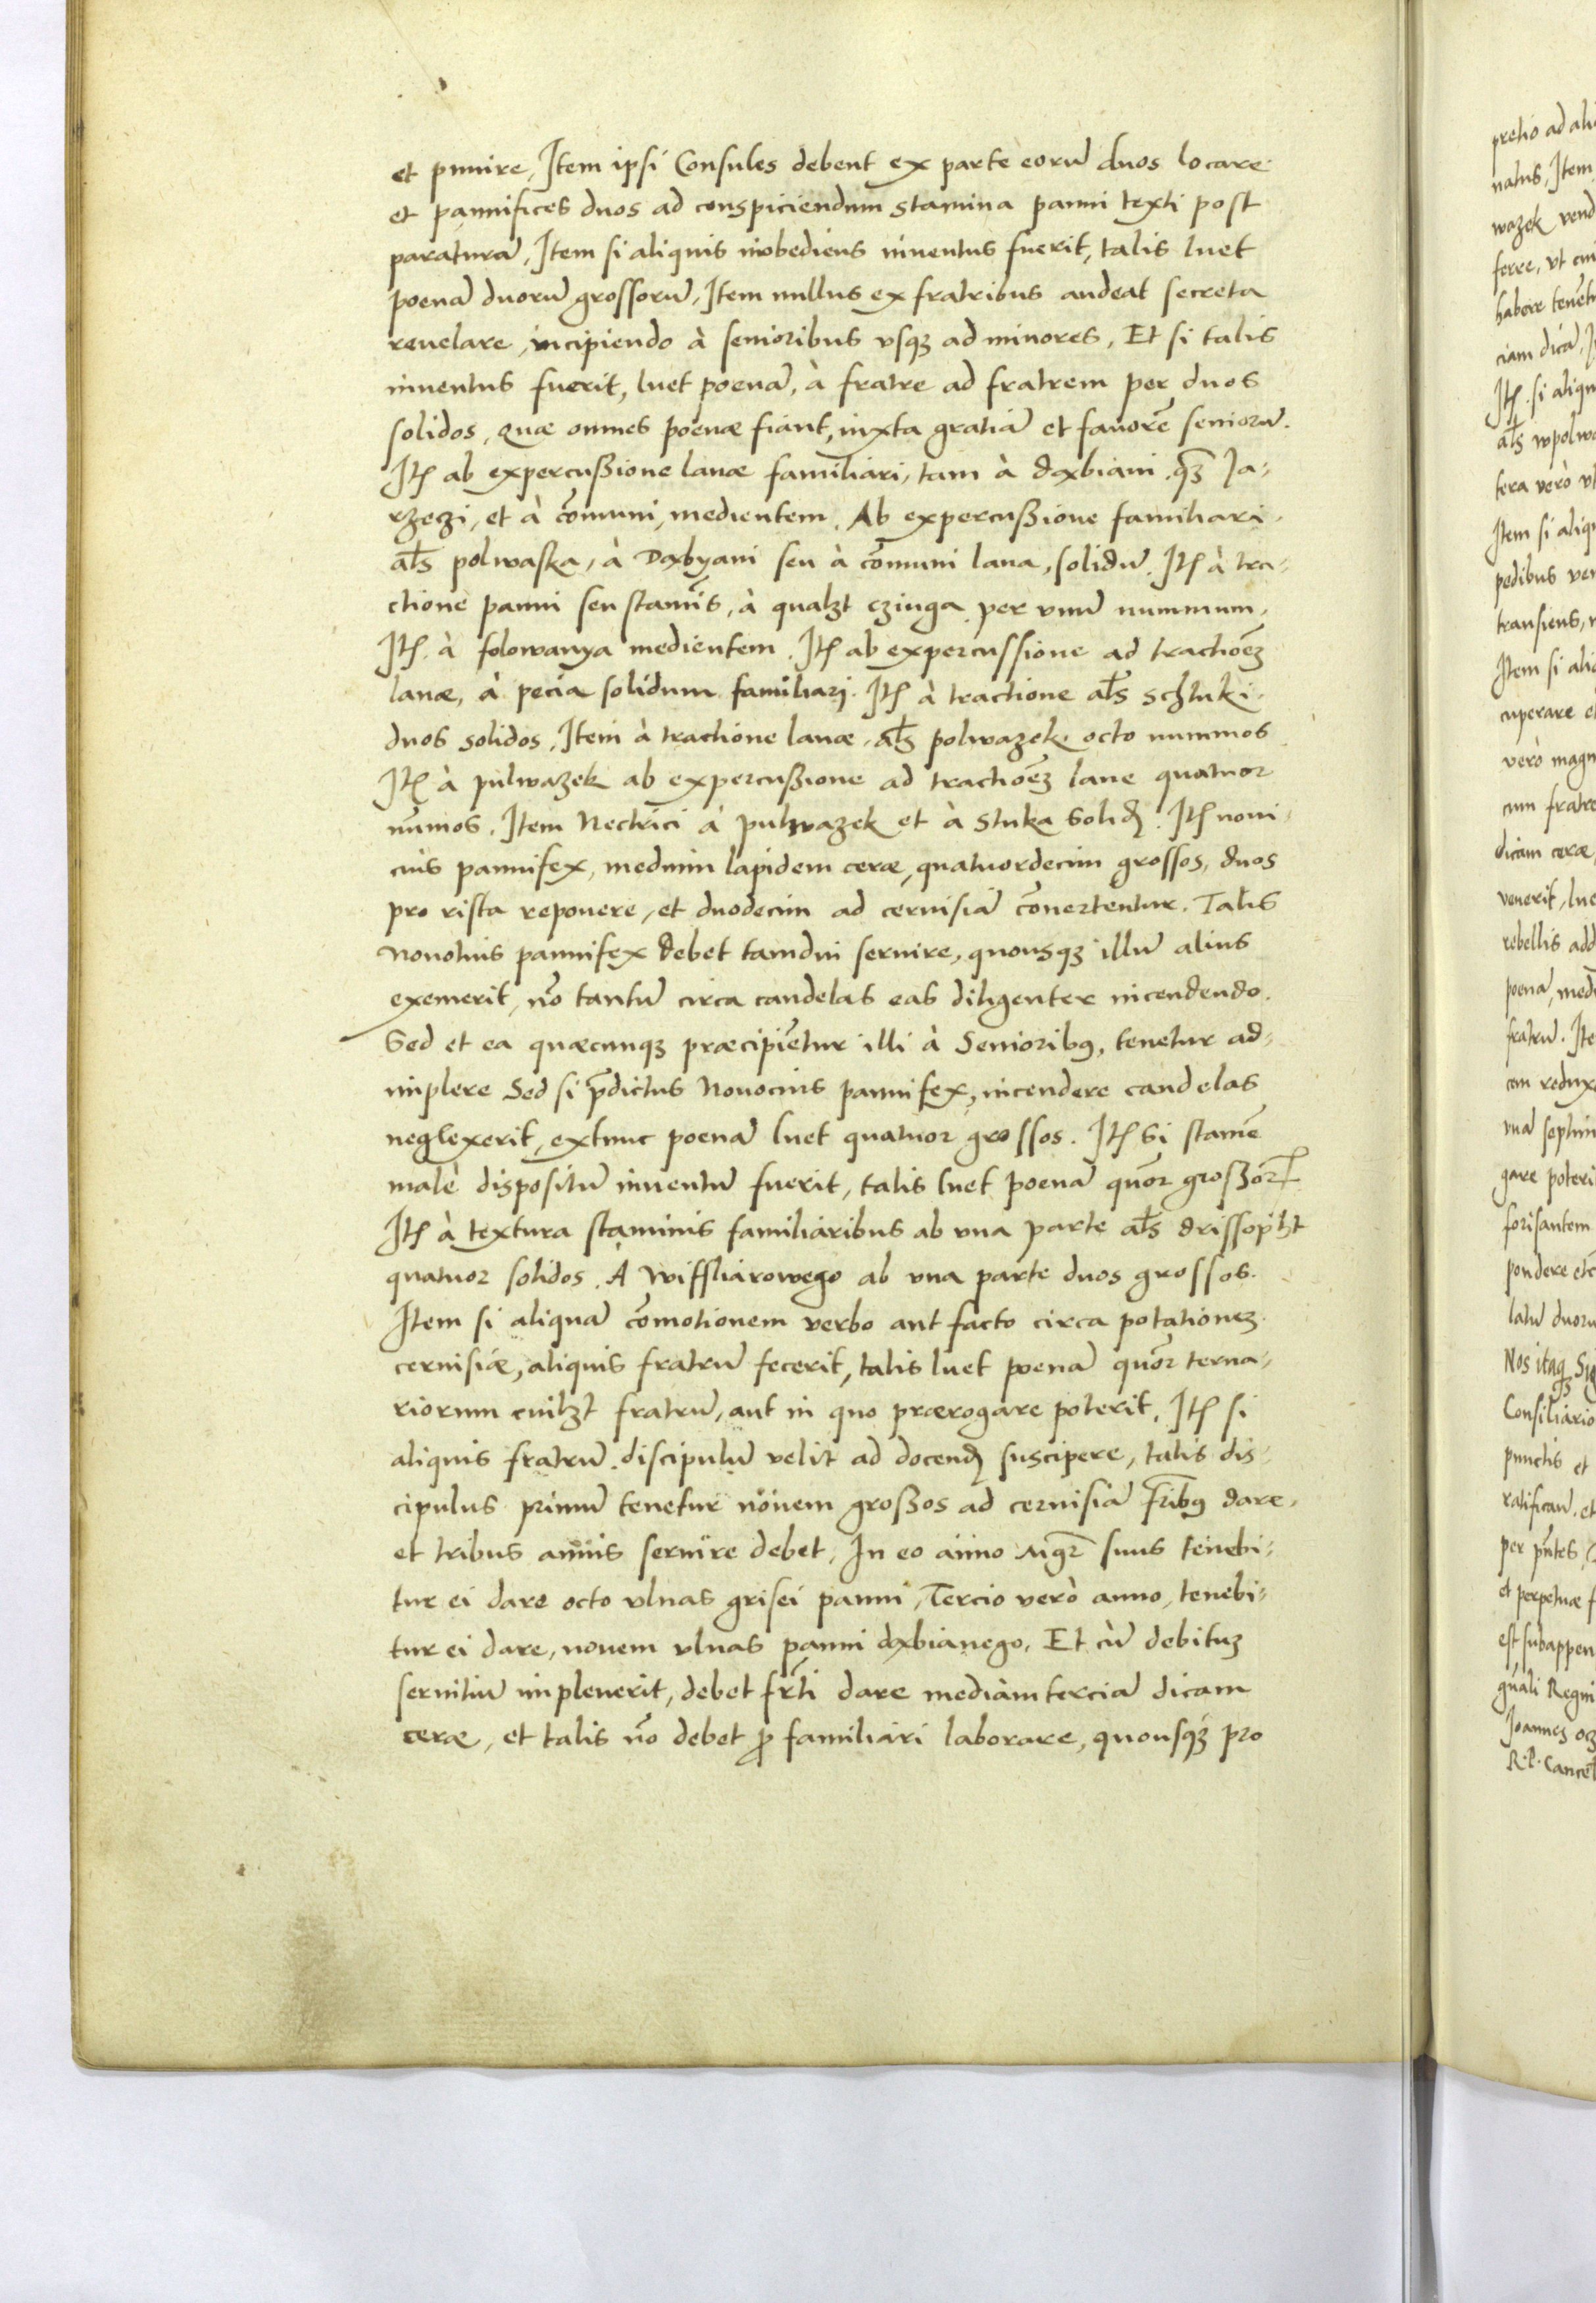 et punire, Item ipsi Consules debent ex parte eorũ duos locare
et pannifices duos ad conspiciendum stamina panni texti post
paraturã, Item si aliquis inobediens inuentus fuerit, talis luet
poenã duorũ grossorũ, Item nullus ex fratribus audeat secreta
reuelare, incipiendo à senioribus vsq́ꝫ ad minores, Et si talis
inuentus fuerit, luet poenã, à fratre ad fratrem per duos
solidos, quæ omnes poenæ fiant, iuxta gratiã et fauorẽ seniorũ.
Itꝭ ab expercußione lanæ familiari, tam à dąbiani qꝫ Ja-
rzęczi, et à cõmuni, medientem, Ab expercußione familiari
als polwaska, à Dąbyani seu à cõmuni lana, solidũ. Itꝭ à tra-
ctione panni seu stamĩs, à qualꝫt cziuga per vnũ nummum,
Itꝭ à folowanya medientem. Itꝭ ab expercussione ad tractiõeꝫ
lanæ, à pecia solidum familiari. Itꝭ à tractione als schtuki
duos solidos, Item à tractione lanæ, als polwazek octo nummos
Itꝭ à pulwazek ab expercußione ad tractiõeꝫ lane quatuor
nũmos, Item Nectrici à pulwazek et à stuka solidꝭ. Itꝭ noui-
cius pannifex, medium lapidem ceræ, quatuordecim grossos, duos
pro rista reponere, et duodecim ad ceruisiã cõuertentur. Talis
Nouotius pannifex debet tamdiu seruire, quousqꝫ illũ alius
exemerit, nõ tantũ circa candelas eas diligenter incendendo.
Sed et ea quæcunqꝫ præcipiẽtur illi à Senioribꝰ, tenetur ad-
implere Sed si p̃dictus Nouocius pannifex, incendere candelas
neglexerit, extunc poenã luet quatuor grossos. Itꝭ Si stamẽ
malè dispositũ inuentũ fuerit, talis luet poenã quõr großorꝝ
Itꝭ à textura staminis familiaribus ab vna parte als
quatuor solidos. A wiffliarowego ab vna parte duos grossos.
Item si aliquã cõmotionem verbo aut facto circa potationeꝫ
ceruisiæ, aliquis fratrũ fecerit, talis luet poenã quõr terna-
riorum cuilꝫt fratrũ, aut in quo prærogare poterit, Itꝭ si
aliquis fratrũ discipulũ velit ad docendꝭ suscipere, talis dis-
cipulus primũ tenetur nouem großos ad ceruisiã fr̃ibꝰ dare,
et tribus annis seruire debet, In eo anno Mgr̃ suus tenebi-
tur ei dare octo vlnas grisei panni, Tercio verò anno, tenebi-
tur ei dare, nouem vlnas panni dąbianego, Et cũ debituꝫ
seruitiũ impleuerit, debet fr̃ti dare mediam terciã dicam
ceræ, et talis nõ debet ꝓ familiari laborare, quousqꝫ pro